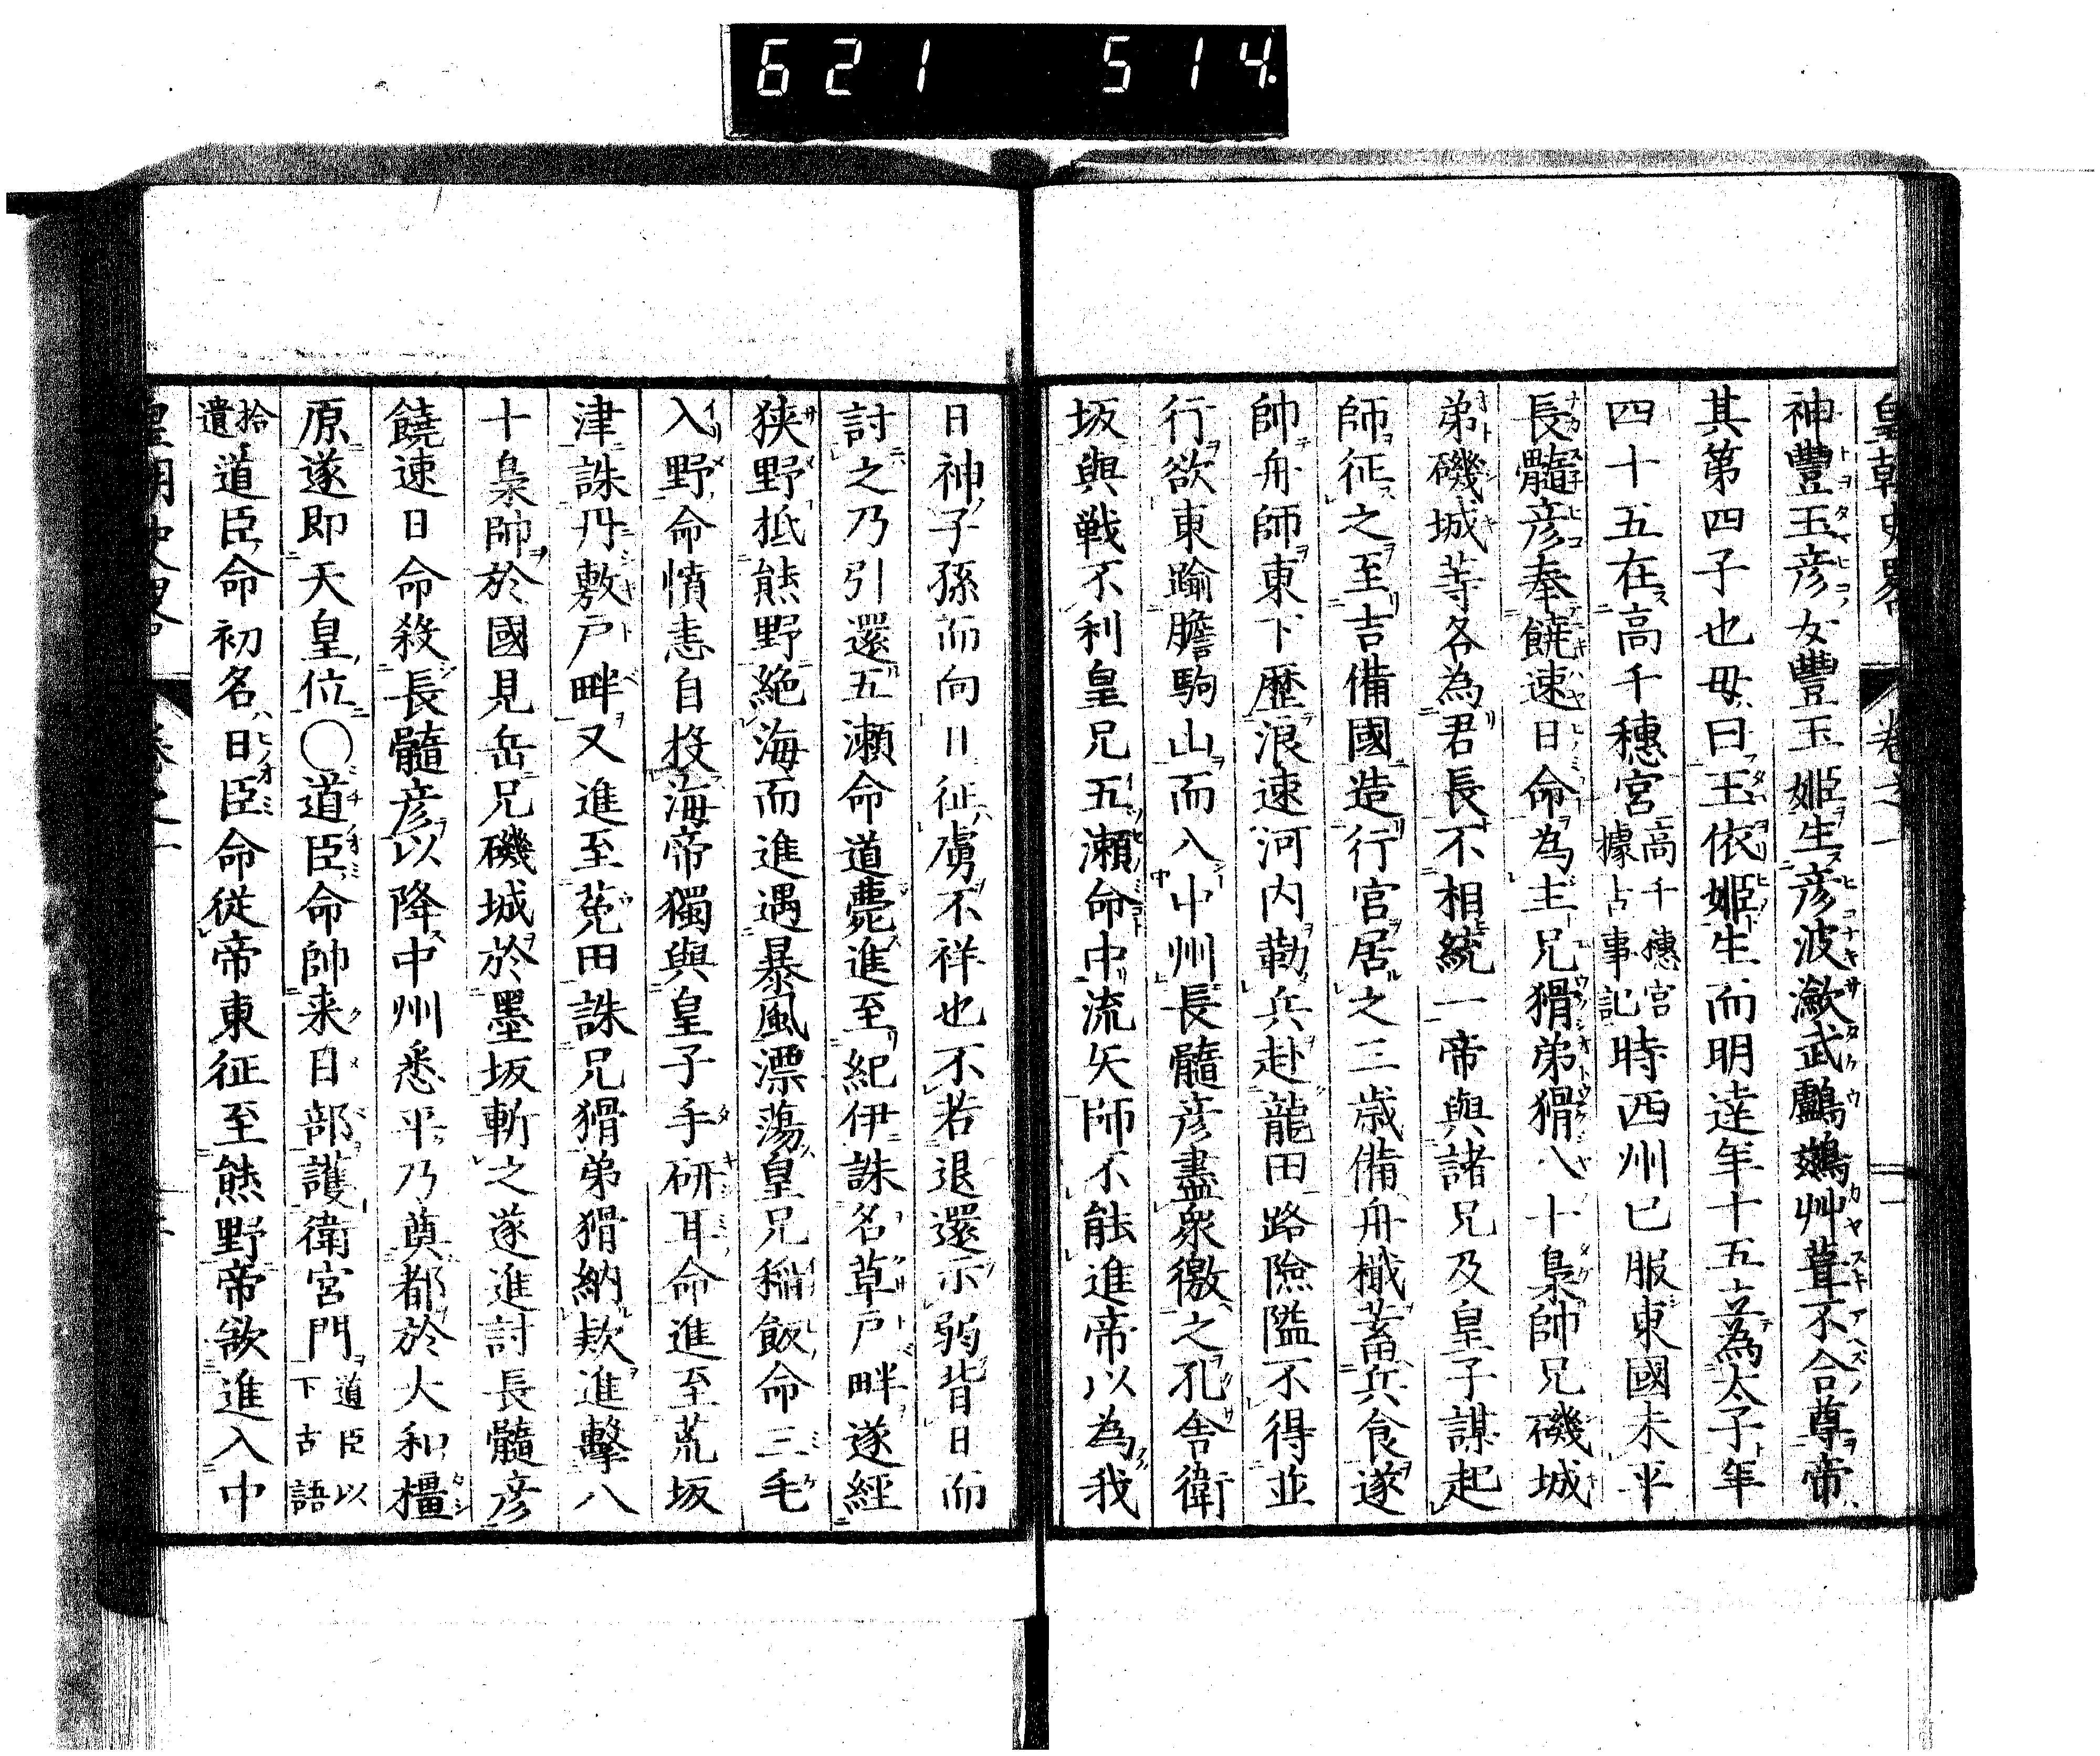 621 514
皇朝史畧 卷之一
神豐玉彦女豐玉姫生彦波瀲武鸕鷀艸葺不合尊帝
其第四子也母曰玉依姫生而明達年十五立為太子年
四十五在高千穗宮高千穗宮據古事記時西州已服東國未平
長髓彦奉饒速日命為主兄猾弟猾八十梟帥兄磯城
弟磯城等各為君長不相統一帝與諸兄及皇子謀起
師征之至吉備國造行宮居之三歳備舟檝蓄兵食遂
帥舟師東下歴浪速河内勒兵赴龍田路險隘不得並
行欲東踰膽駒山而入中州長髓彦盡衆徼之孔舎衛
坂與戦不利皇兄五瀬命中流矢師不能進帝以為我
日神子孫而向日征虜不祥也不若退還示弱背日而
討之乃引還五瀬命道薨進至紀伊誅名草戸畔遂經
狭野抵熊野絶海而進遇暴風漂蕩皇兄稲飯命三毛
入野命憤恚自投海帝獨與皇子手研耳命進至荒坂
津誅丹敷戸畔又進至菟田誅兄猾弟猾納欵進擊八
十梟帥於國見岳兄磯城於墨坂斬之遂進討長髓彦
饒速日命殺長髓彦以降中州悉平乃奠都於大和橿
原遂即天皇位〇道臣命帥来目部護衛宮門道臣以下古語
拾遺道臣命初名日臣命従帝東征至熊野帝欲進入中
皇朝史畧 卷之一